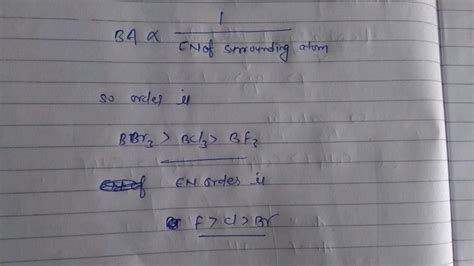 BA ∝ 1
EN of surrounding atom
so order is
BBr3 > BCl3 > BF3
EN order is
F > Cl > Br